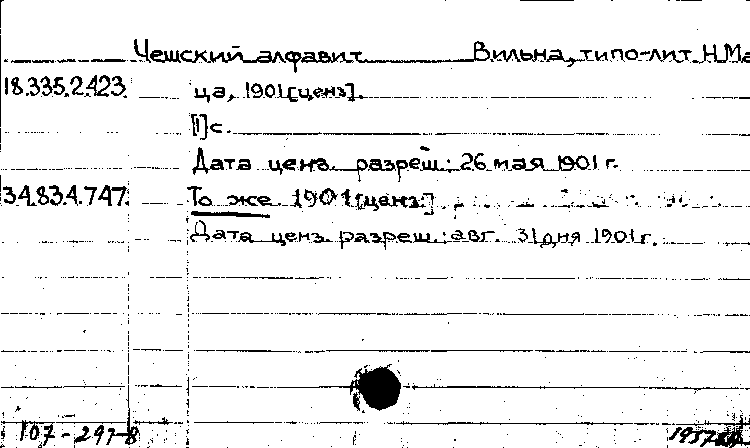 Чешский алфавит Вильна, типо-лит Н.Ма
18.335.2.423. ца, 1901[ценз].
[1]с.
Дата ценз. разреш.: 26 мая 1901 г.
34.834.747. То же 1901[ценз.]
Дата ценз. разреш.: авг. 31 дня 1901 г.
107-297-8